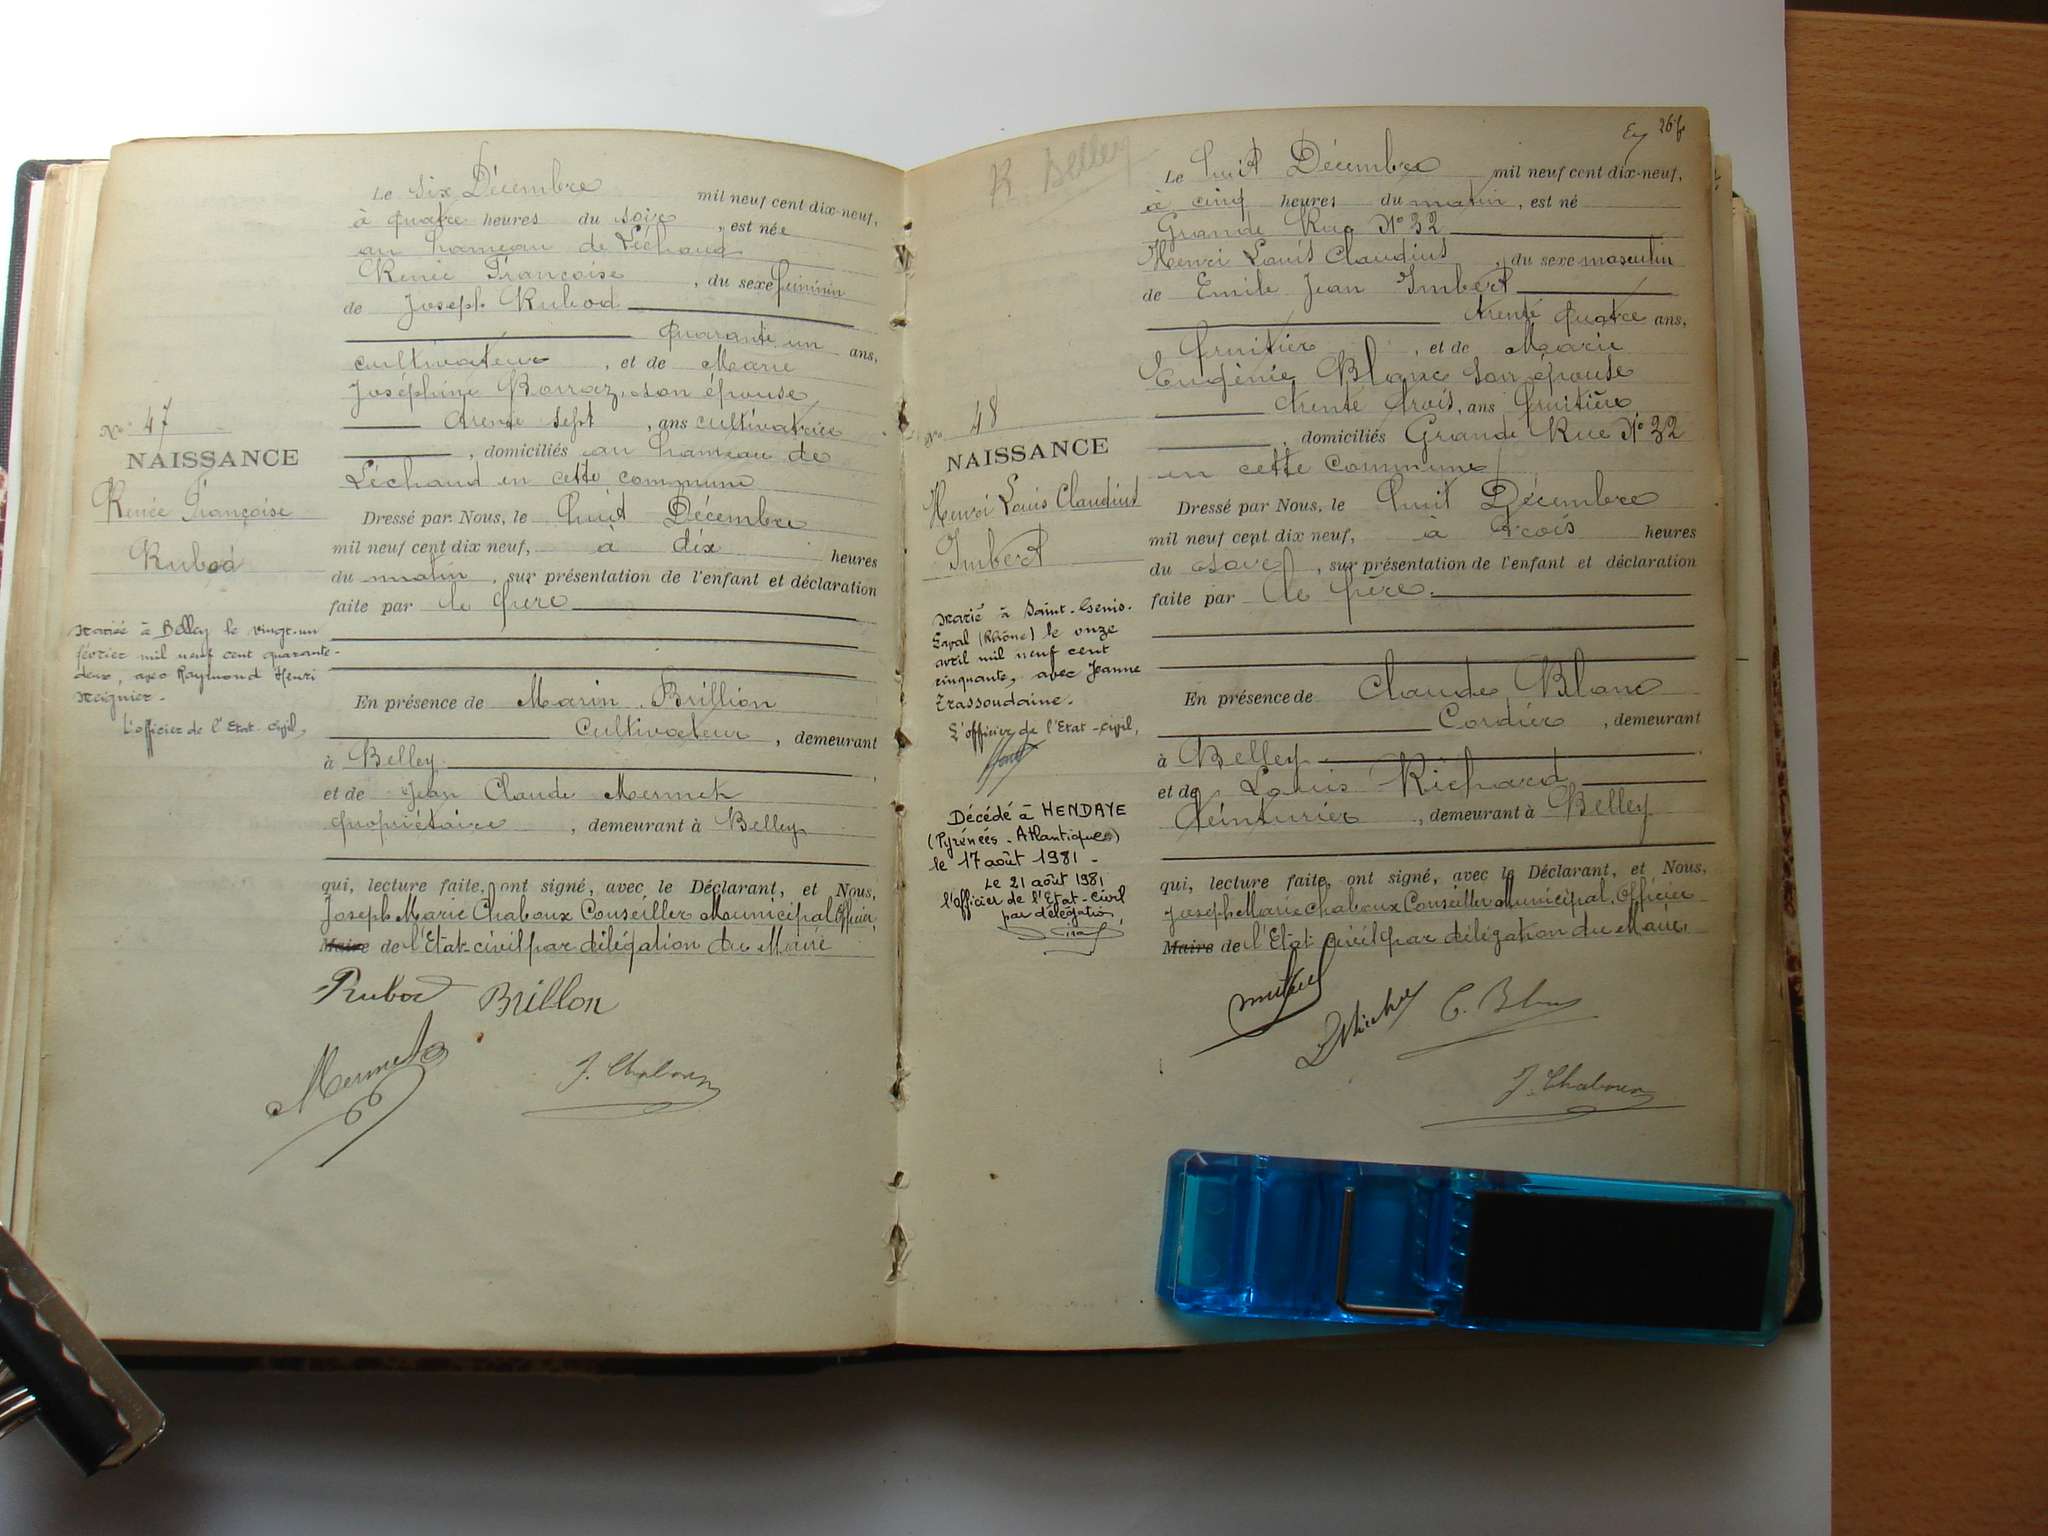 Le Six Décembre mil neuf cent dix-neuf,
à quatre heures du soir, est née
au hameau de Léchaud
Renée Françoise, du sexe féminin
de Joseph Rubod
quarante un ans,
cultivateur, et de Marie
Joséphine Borraz, son épouse
trente sept, ans cultivatrice
, domiciliés au hameau de
Léchaud en cette commune
No 47
NAISSANCE
Renée Françoise
Rubod
Dressé par Nous, le huit Décembre
mil neuf cent dix neuf, à dix heures
du matin, sur présentation de l'enfant et déclaration
faite par le père
Mariée à Belley le vingt-un
février mil neuf cent quarante-
deux, avec Raymond Henri
L'officier de l'Etat-Civil,
En présence de Marin Brillion
Cultivateur, demeurant
à Belley
et de Jean Claude Mermet
propriétaire, demeurant à Belley
qui, lecture faite, ont signé, avec le Déclarant, et Nous,
Joseph Marie Chaboux Conseiller Municipal Officier
Maire de l'Etat-civil par délégation du Maire
Rubod Brillon
Mermet J. Chaboux
R. Belley
26
Le huit Décembre mil neuf cent dix-neuf,
à cinq heures du matin, est né
Grande Rue N° 32
Henri Louis Claudius, du sexe masculin
de Emile Jean Imbert
trente quatre ans,
fruitier, et de Marie
Eugénie Blanc son épouse
trente trois, ans fruitière
, domiciliés Grande Rue N° 32
en cette commune
No 48
NAISSANCE
Henri Louis Claudius
Imbert
Dressé par Nous, le huit Décembre
mil neuf cent dix neuf, à trois heures
du soir, sur présentation de l'enfant et déclaration
faite par le père.
Marié à Saint-Genis-
Laval (Rhône) le onze
avril mil neuf cent
cinquante, avec Jeanne
Trassoudaine.
L'officier de l'Etat-Civil,
Décédé à HENDAYE
(Pyrénées-Atlantiques)
le 17 août 1981 -
Le 21 août 1981
l'Officier de l'Etat-Civil
par délégation,
En présence de Claude Blanc
Cordier, demeurant
à Belley
et de Louis Richard
teinturier, demeurant à Belley
qui, lecture faite, ont signé, avec le Déclarant, et Nous,
Joseph Marie Chaboux Conseiller Municipal, Officier
Maire de l'Etat civil par délégation du Maire,
C. Blanc
J. Chaboux